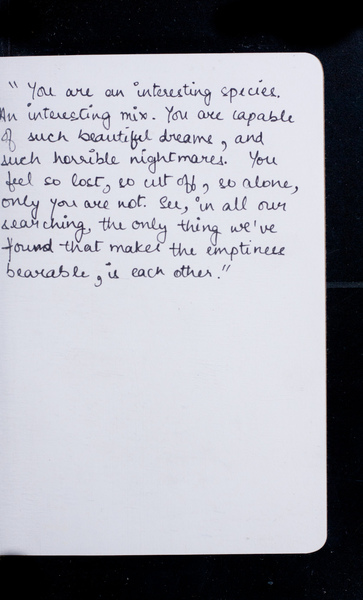 "You are an interesting species.
An interesting mix. You are capable
of such beautiful dreams, and
such horrible nightmares. You
feel so lost, so cut off, so alone,
only you are not. See, in all our
searching, the only thing we've
found that makes the emptiness
bearable, is each other."